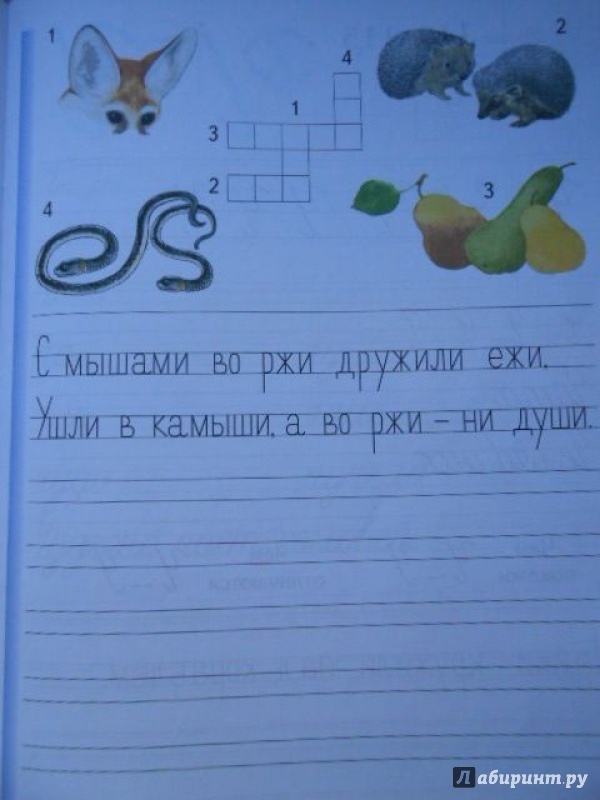 1
2
4
1
3
2
3
4
С мышами во ржи дружили ежи.
Ушли в камыши, а во ржи – ни души.
отличаются
Лабиринт.ру